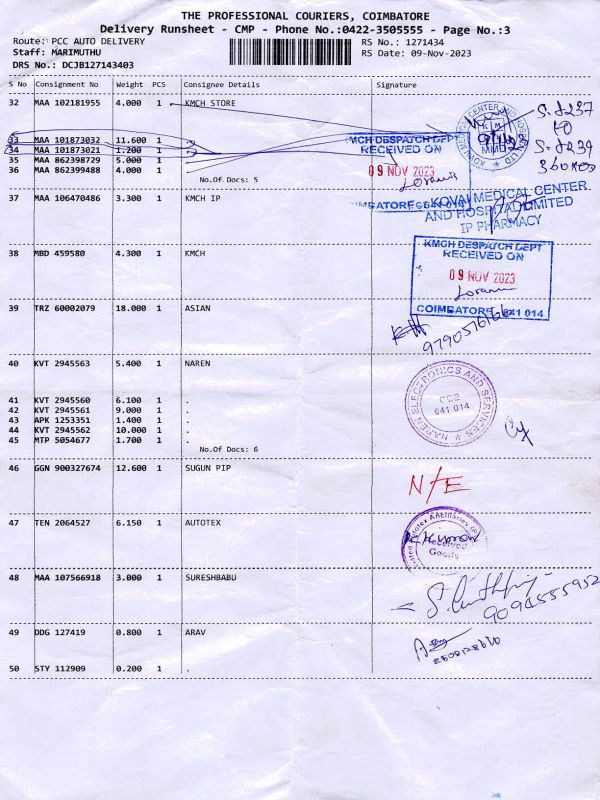 THE PROFESSIONAL COURIERS, COIMBATORE
Delivery Runsheet - CMP - Phone No.:0422-3505555 - Page No.:3
Route: PCC AUTO DELIVERY RS No.: 1271434
Staff: MARIMUTHU RS Date: 09-Nov-2023
DRS No.: DCJB127143403
S No Consignment No Weight PCS Consignee Details Signature
32 MAA 102181955 4.000 1 KMCH STORE
33 MAA 101873032 11.600 1
34 MAA 101873021 1.200 1
35 MAA 862398729 5.000 1
36 MAA 862399488 4.000 1
No.Of Docs: 5
KMCH DESPATCH DEPT
RECEIVED ON
09 NOV 2023
COIMBATORE 641 014
37 MAA 106470486 3.300 1 KMCH IP
KOVAI MEDICAL CENTER
AND HOSPITAL LIMITED
IP PHARMACY
38 MBD 459580 4.300 1 KMCH
KMCH DESPATCH DEPT
RECEIVED ON
09 NOV 2023
COIMBATORE 641 014
39 TRZ 60002079 18.000 1 ASIAN
40 KVT 2945563 5.400 1 NAREN
41 KVT 2945560 6.100 1 .
42 KVT 2945561 9.000 1 .
43 APK 1253351 1.400 1 .
44 KVT 2945562 10.000 1 .
45 MTP 5054677 1.700 1 .
No.Of Docs: 6
NAREN ELECTRONICS AND SERVICES
CCE
641 014
46 GGN 900327674 12.600 1 SUGUN PIP
N/E
47 TEN 2064527 6.150 1 AUTOTEX
Received
Goods
48 MAA 107566918 3.000 1 SURESHBABU
9094555952
49 DDG 127419 0.800 1 ARAV
50 STY 112909 0.200 1 .